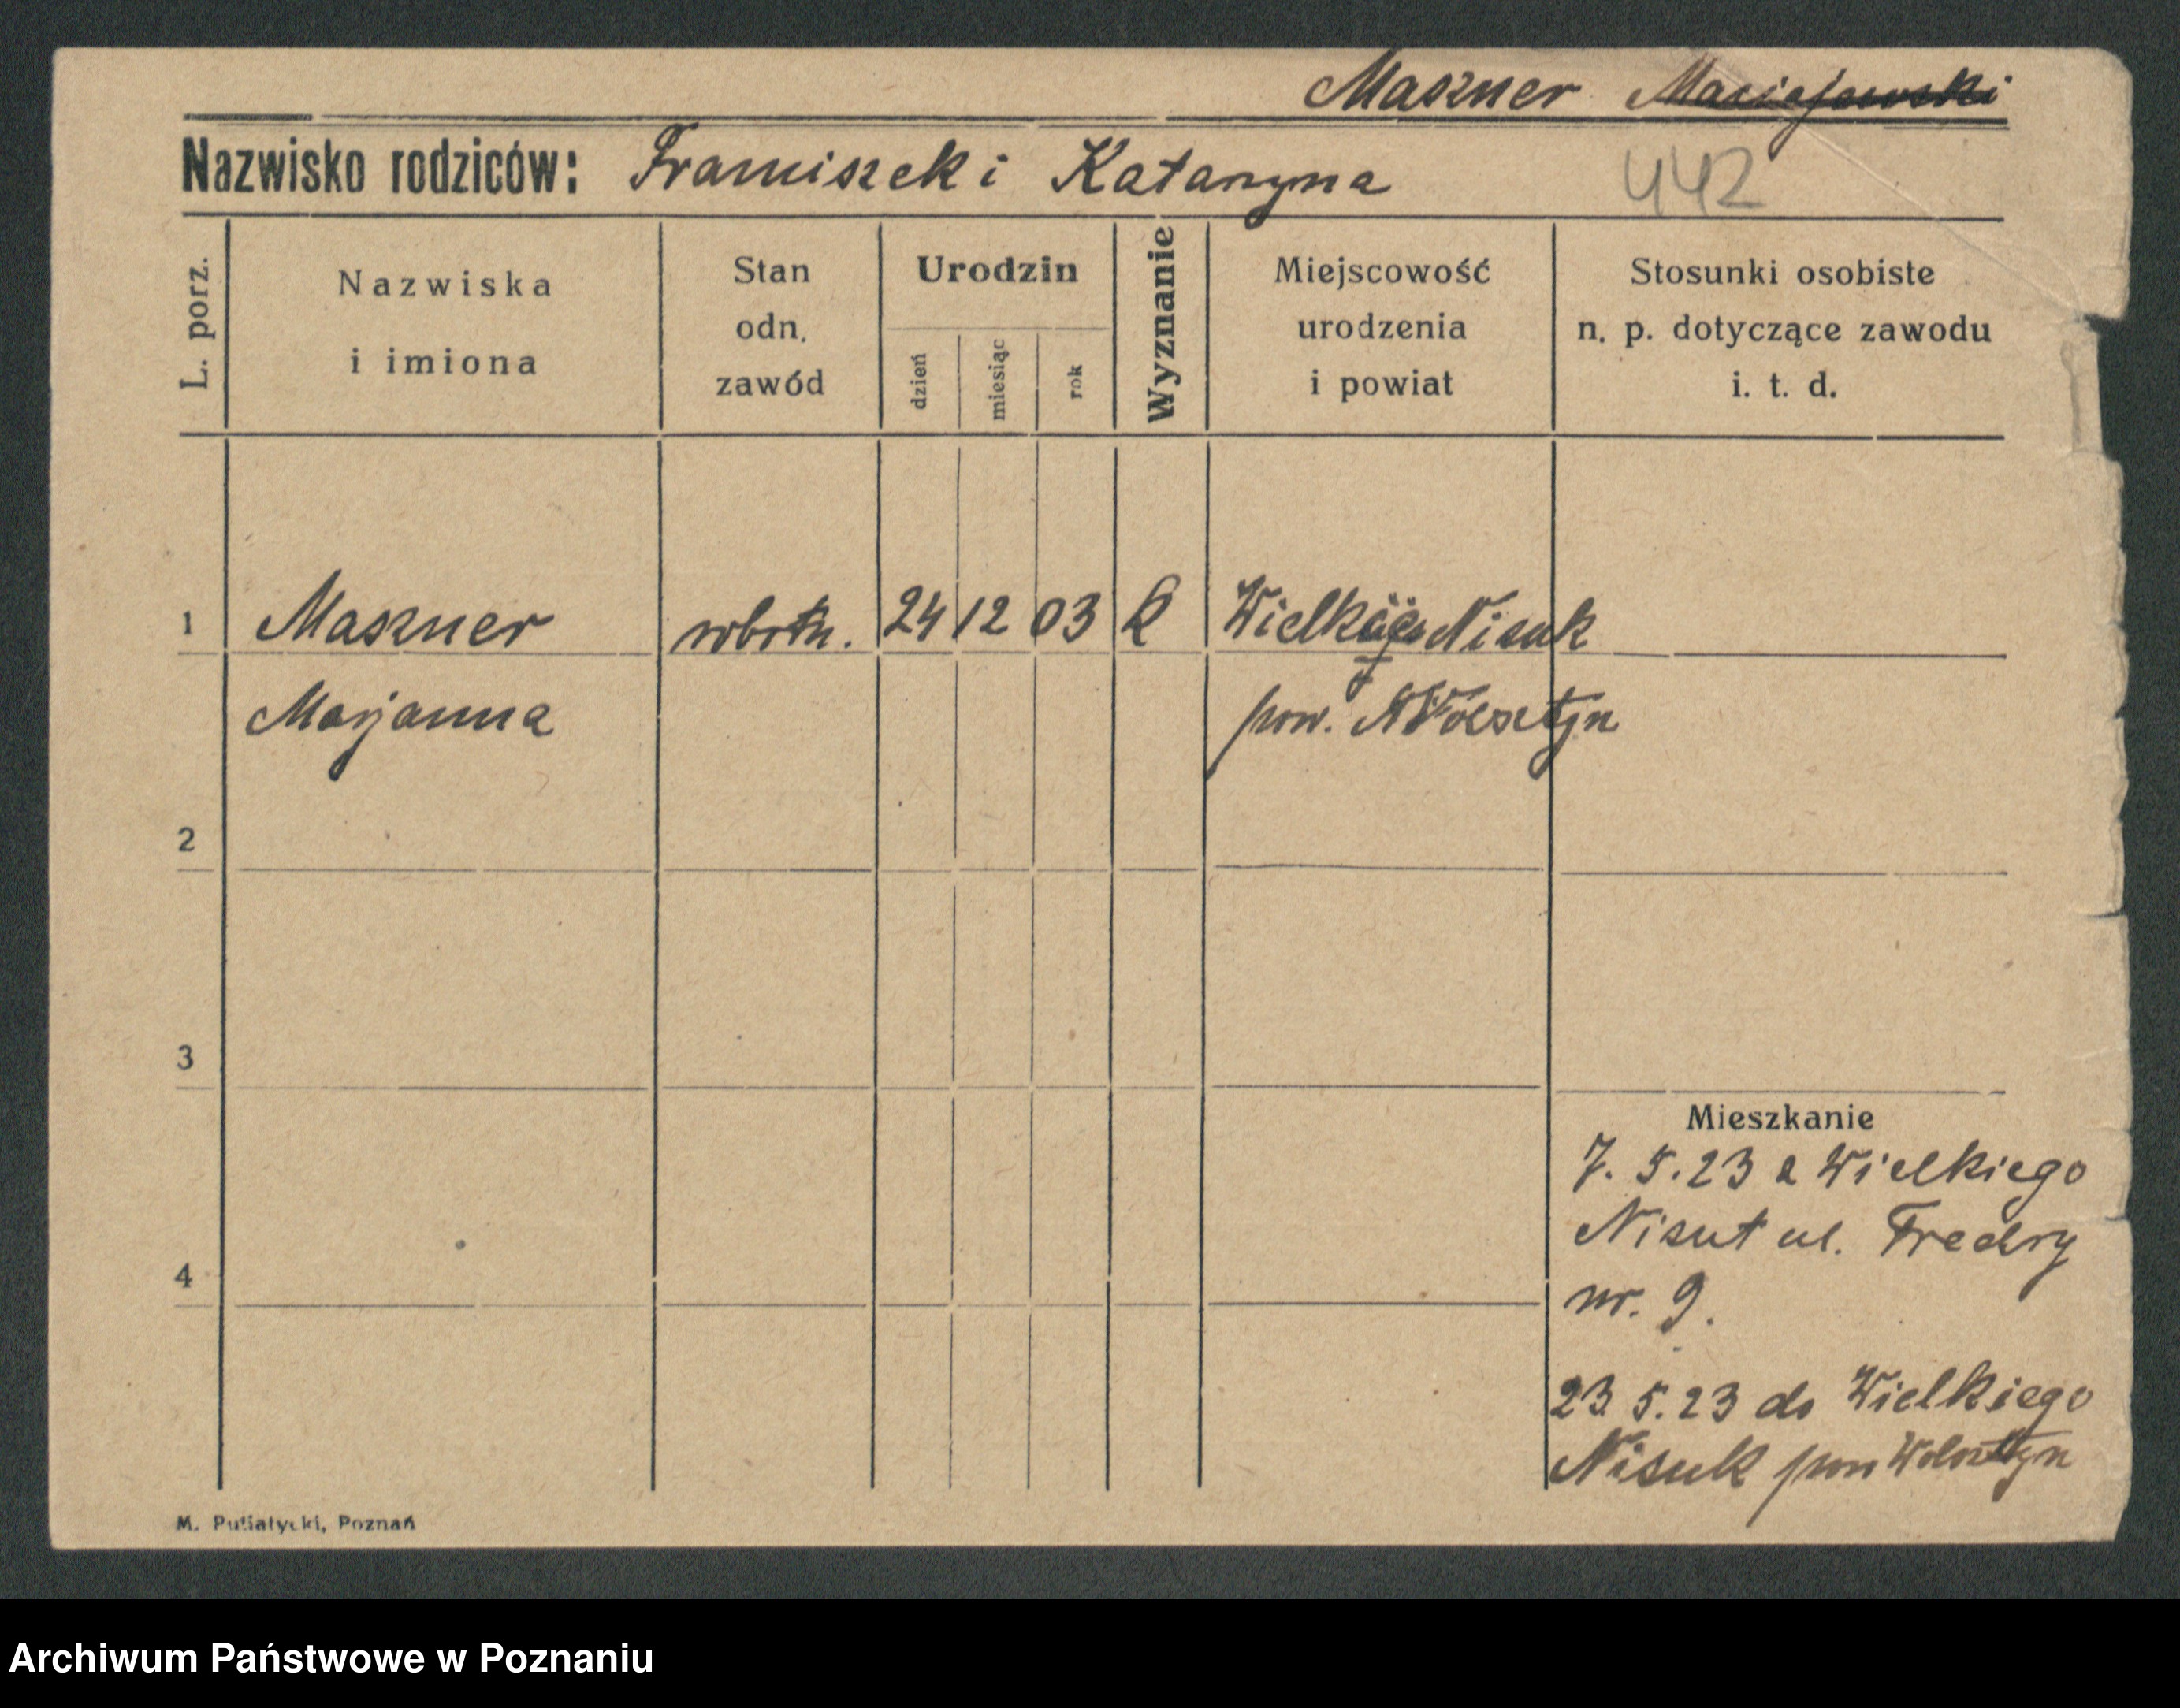 Maszner Maciejewski
Nazwisko rodziców: Franciszek i Katarzyna
442
L. porz.
Nazwiska
i imiona
Stan
odn.
zawód
Urodzin
dzień
miesiąc
rok
Wyznanie
Miejscowość
urodzenia
i powiat
Stosunki osobiste
n. p. dotyczące zawodu
i. t. d.
1 Maszner robotn. 24 12 03 k Nisuk
Marjanna pow. Wolsztyn
2
3
4
Mieszkanie
7. 5. 23 z Wielkiego
ul. Fredry
nr. 9.
23. 5. 23 do Wielkiego
Nisuk pow Wolsztyn
M. Putiatycki, Poznań
Archiwum Państwowe w Poznaniu